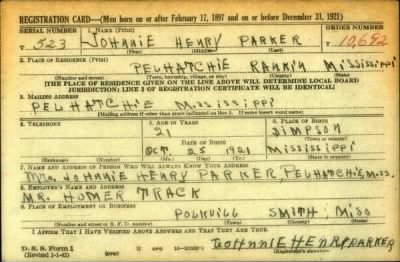 REGISTRATION CARD—(Men born on or after February 17, 1897 and on or before December 31, 1921)
SERIAL NUMBER 1. NAME (Print) ORDER NUMBER
T 523 JOHNNIE HENRY PARKER 10,692
(First) (Middle) (Last)
2. PLACE OF RESIDENCE (Print)
PELHATCHIE RANKIN MISSISSIPPI
(Number and street) (Town, township, village, or city) (County) (State)
[THE PLACE OF RESIDENCE GIVEN ON THE LINE ABOVE WILL DETERMINE LOCAL BOARD
JURISDICTION; LINE 2 OF REGISTRATION CERTIFICATE WILL BE IDENTICAL]
3. MAILING ADDRESS
PELHATCHIE MISSISSIPPI
[Mailing address if other than place indicated on line 2. If same insert word same]
4. TELEPHONE 5. AGE IN YEARS 6. PLACE OF BIRTH
21 SIMPSON
DATE OF BIRTH (Town or county)
OCT. 25 1921 MISSISSIPPI
(Exchange) (Number) (Mo.) (Day) (Yr.) (State or country)
7. NAME AND ADDRESS OF PERSON WHO WILL ALWAYS KNOW YOUR ADDRESS
MRS. JOHNNIE HENRY PARKER PELHATCHIE, MISS.
8. EMPLOYER'S NAME AND ADDRESS
MR. HOMER TRACK
9. PLACE OF EMPLOYMENT OR BUSINESS
POLKVILL SMITH, MISS
(Number and street or R. F. D. number) (Town) (County) (State)
I AFFIRM THAT I HAVE VERIFIED ABOVE ANSWERS AND THAT THEY ARE TRUE.
D. S. S. Form 1
(Revised 1-1-42) JOHNNIE HENRY PARKER